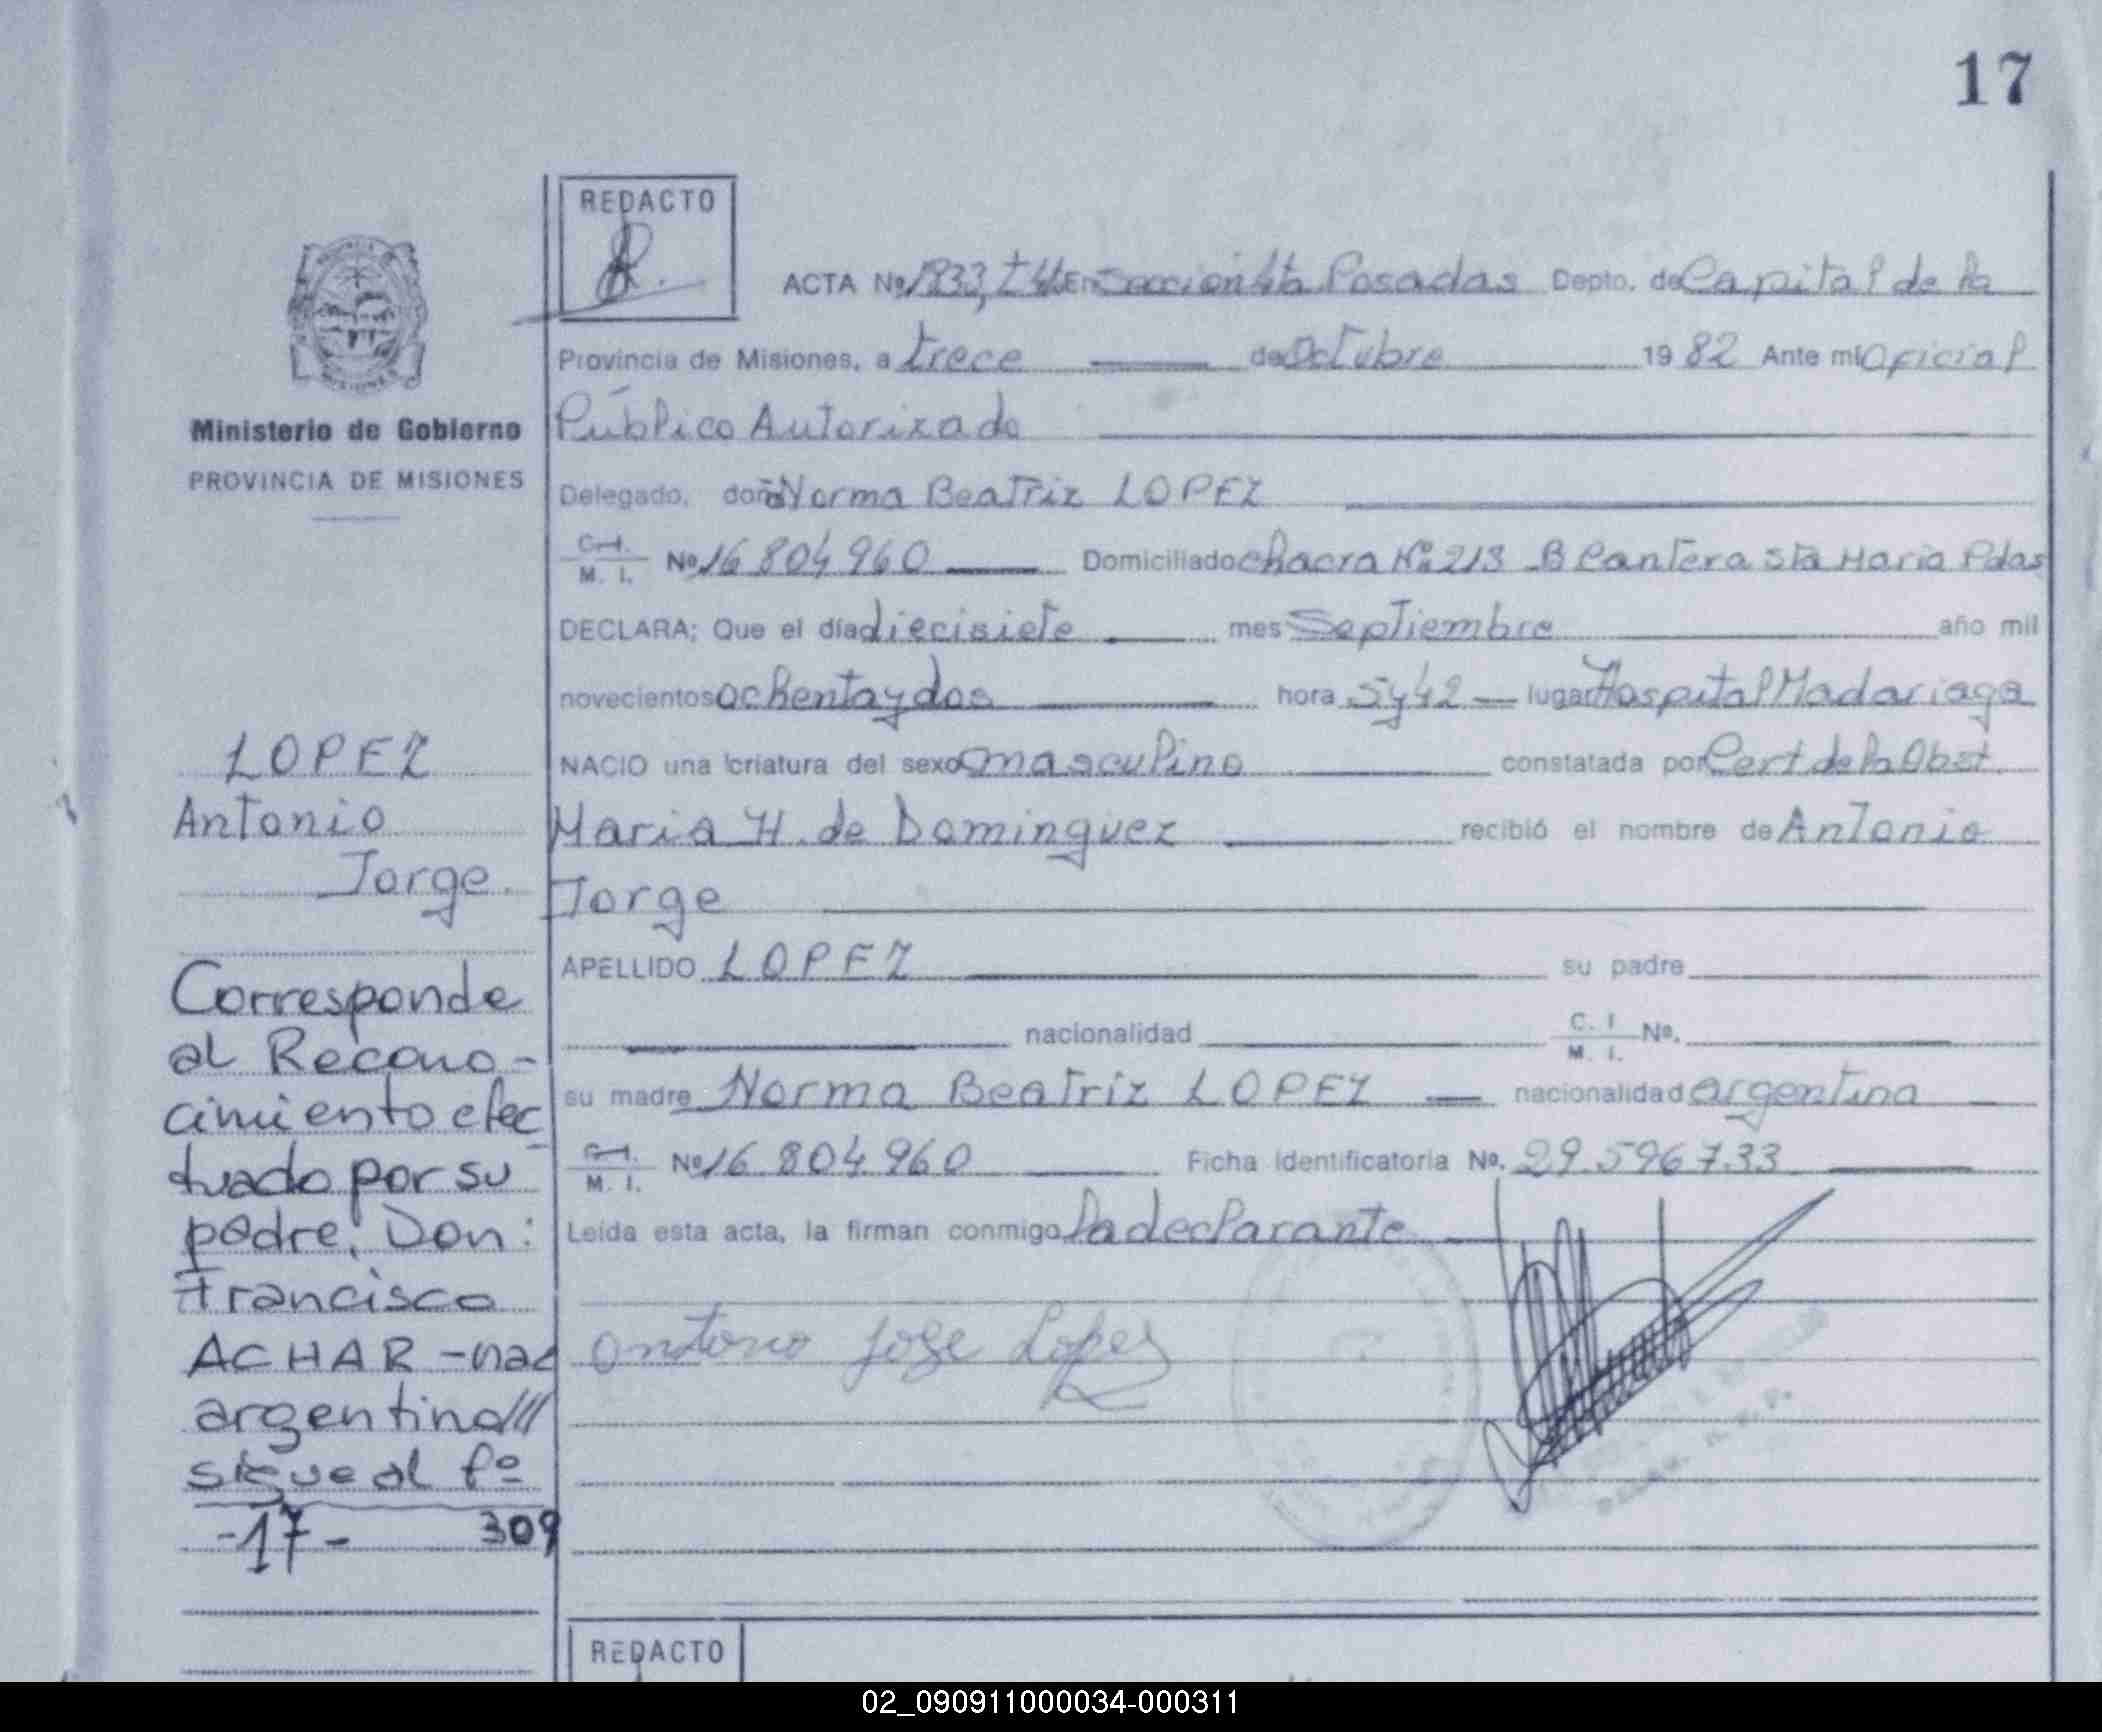 17
REDACTO
ACTA Nº 1833, En Sección 4ta Posadas Depto. de Capital de la
Provincia de Misiones, a trece de Octubre 1982 Ante mi Oficial
Público Autorizado
Delegado, doña Norma Beatriz LOPEZ
C. I.
M. I. Nº 16 804 960 Domiciliado chacra Nº 213 B Cantera Sta Maria Pdas
DECLARA; Que el día diecisiete mes Septiembre año mil
novecientos ochenta y dos hora 5 y 42 lugar Hospital Madariaga
NACIO una criatura del sexo masculino constatada por Cert de la Obst
Maria H. de Dominguez recibió el nombre de Antonio
Jorge
APELLIDO LOPEZ su padre
nacionalidad C. I. Nº.
M. I.
su madre Norma Beatriz LOPEZ nacionalidad argentina
C. I.
M. I. Nº 16 804 960 Ficha Identificatoria No. 29.596733
Leída esta acta, la firman conmigo la declarante
Ministerio de Gobierno
PROVINCIA DE MISIONES
LOPEZ
Antonio
Jorge.
Corresponde
al Recono-
cimiento efec-
tuado por su
padre, Don:
Francisco
ACHAR -nac
argentina///
sigue al fº
-17- 309
REDACTO
02_090911000034-000311